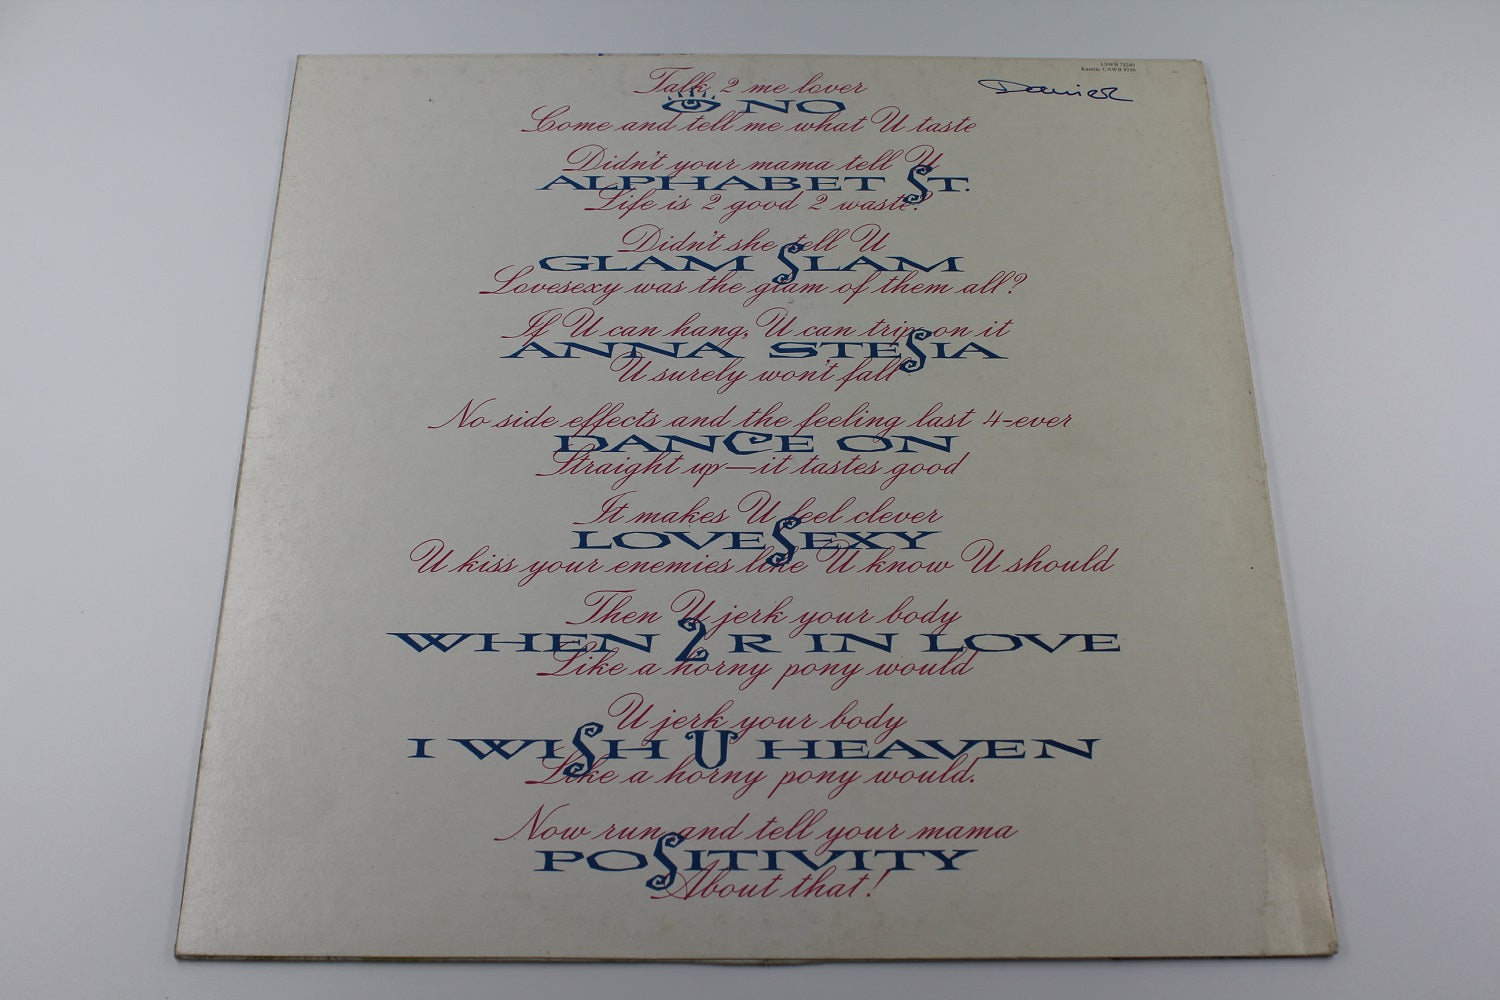 LSWB 73240
Kaseta: CAWB 9336
Talk 2 me lover
NO
Come and tell me what U taste
Didn't your mama tell U
ALPHABET ST.
Life is 2 good 2 waste?
Didn't she tell U
GLAM SLAM
Lovesexy was the glam of them all?
If U can hang, U can trip on it
ANNA STESIA
U surely won't fall
No side effects and the feeling last 4-ever
DANCE ON
Straight up—it tastes good
It makes U feel clever
LOVESEXY
U kiss your enemies like U know U should
Then U jerk your body
WHEN 2 R IN LOVE
Like a horny pony would
U jerk your body
I WISH U HEAVEN
Like a horny pony would.
Now run and tell your mama
POSITIVITY
About that!